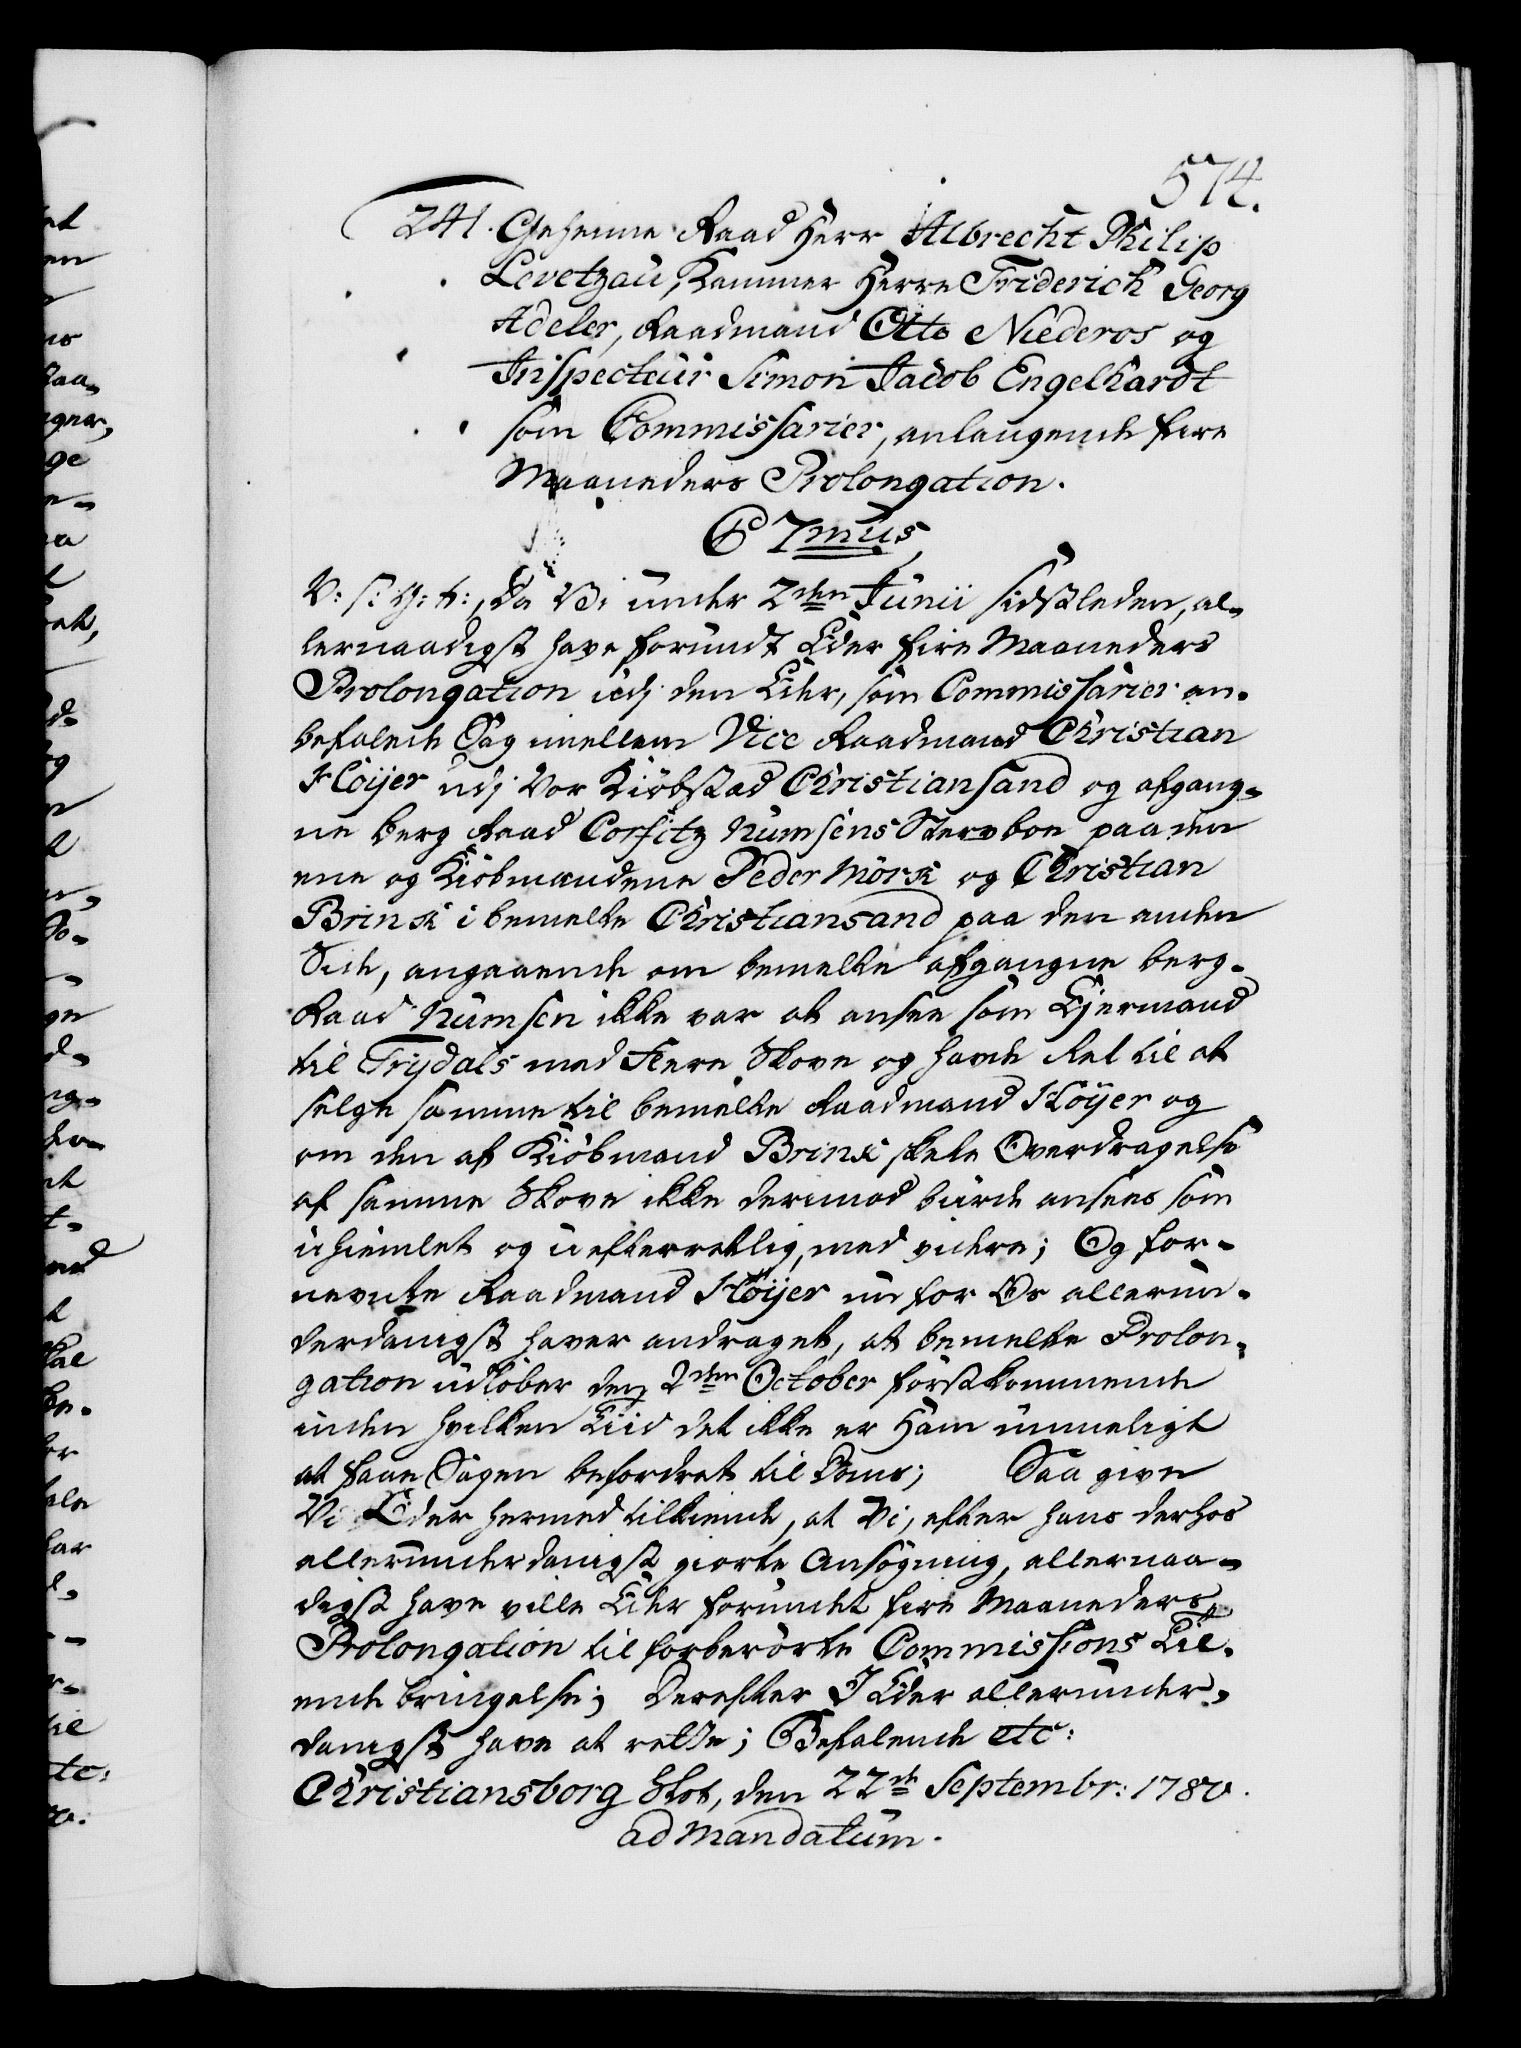 574.
241. Geheime Raad Herr Albrecht Philip
Levetzau, Kammer Herre Friderich Georg
Adeler, Raadmand Otto Niederos og
Inspecteur Simon Jacob Engelhardt
som Commissarier, anlangende fire
Maaneders Prolongation.
C 7mus
V: S: G: T:, Da Vi under 2den Junii sidstleden, al-
lernaadigst have forundt Eder fire Maaneders
Prolongation udj den Eder, som Commissarier an-
befalede Sag imellem Vice Raadmand Christian
Höijer udj Vor Kiöbstad Christiansand og afgang-
ne Berg Raad Corfitz Numsens Sterboe paa den
ene og Kiöbmændene Peder Mörk og Christian
Brinck i bemelte Christiansand paa den anden
Side, angaaende om bemelte afgangne Berg-
Raad Numsen ikke var at ansee som Ejermand
til Trydals med fleere Skove og havde Ret til at
selge samme til bemelte Raadmand Höijer og
om den af Kiöbmand Brinck skete Overdragelse
af samme Skove ikke derimod burde ansees som
uhiemlet og uefterrettlig, med videre; Og for-
nevnte Raadmand Höijer nu for Os allerun-
derdanigst haver andraget, at bemelte Prolon-
gation udlöber den 2den October förstkommende
inden hvilken Tiid det ikke er Ham mueligt
at faae Sagen befordret til Doms; Saa give
Vi Eder hermed tilkiende, at Vi, efter hans derhos
allerunderdanigst giorte Ansögning, allernaa-
digst have ville Eder forundet fire Maaneders
Prolongation til forberörte Commissions Til-
endebringelse; Derefter I Eder allerunder-
danigst have at rette; Befalende etc:
Christiansborg Slot, den 22de Septembr: 1780.
ad Mandatum.